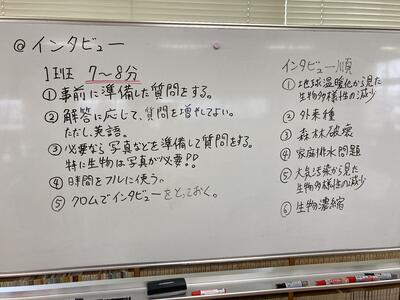 @インタビュー
1班 7〜8分
①事前に準備した質問をする。
②解答に応じて、質問を増やしてよい。
ただし、英語。
③必要なら写真などを準備して質問をする。
特に生物は写真が必要!!
④時間をフルに使う。
⑤クロムでインタビューをとっておく。
インタビュー順
①地球温暖化から見た
生物多様性の減少
②外来種
③森林破壊
④家庭排水問題
⑤大気汚染から見た
生物多様性の減少
⑥生物濃縮